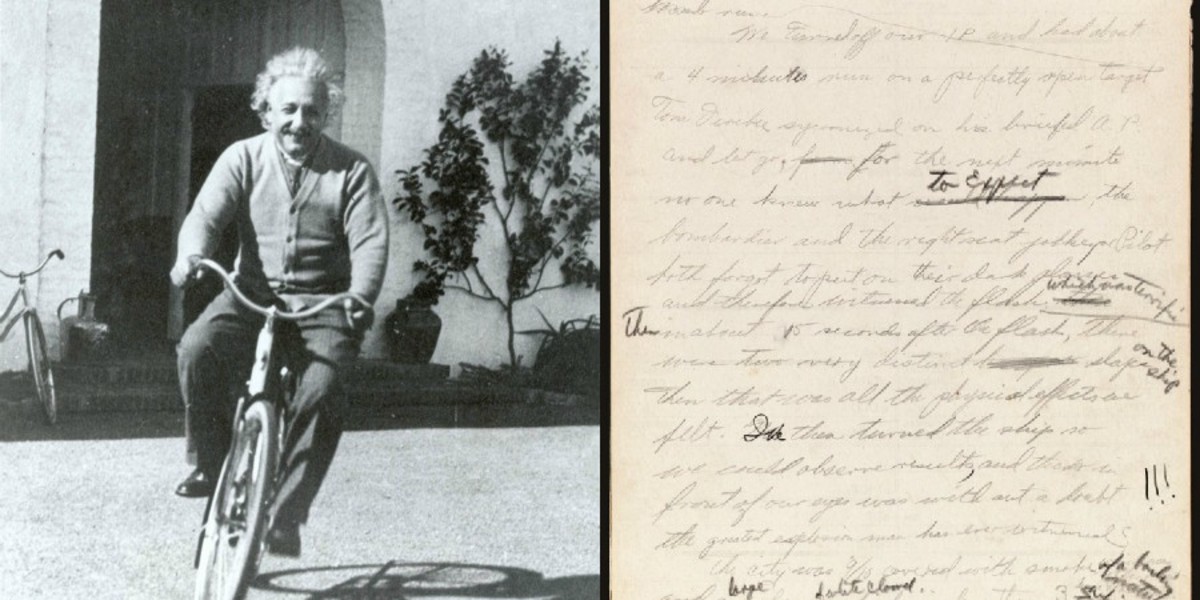 Bomb run.
We turned off our I.P. and had about
a 4 minutes run on a perfectly open target
Tom Ferebee synronized on his briefed A.P.
and let go, for the next minute
no one knew what to Expect, the
bombardier and the right seat jockey or Pilot
both forgot to put on their dark glasses
and therefore witnessed the flash which was terrific
Then in about 15 seconds after the flash, there
was two very distinct slaps on the ship
then that was all the physical effects we
felt. We then turned the ship so
we could observe results, and there in
front of our eyes was without a doubt
the greatest explosion man has ever witnessed
!!!
the city was 9/10 covered with smoke
large white cloud